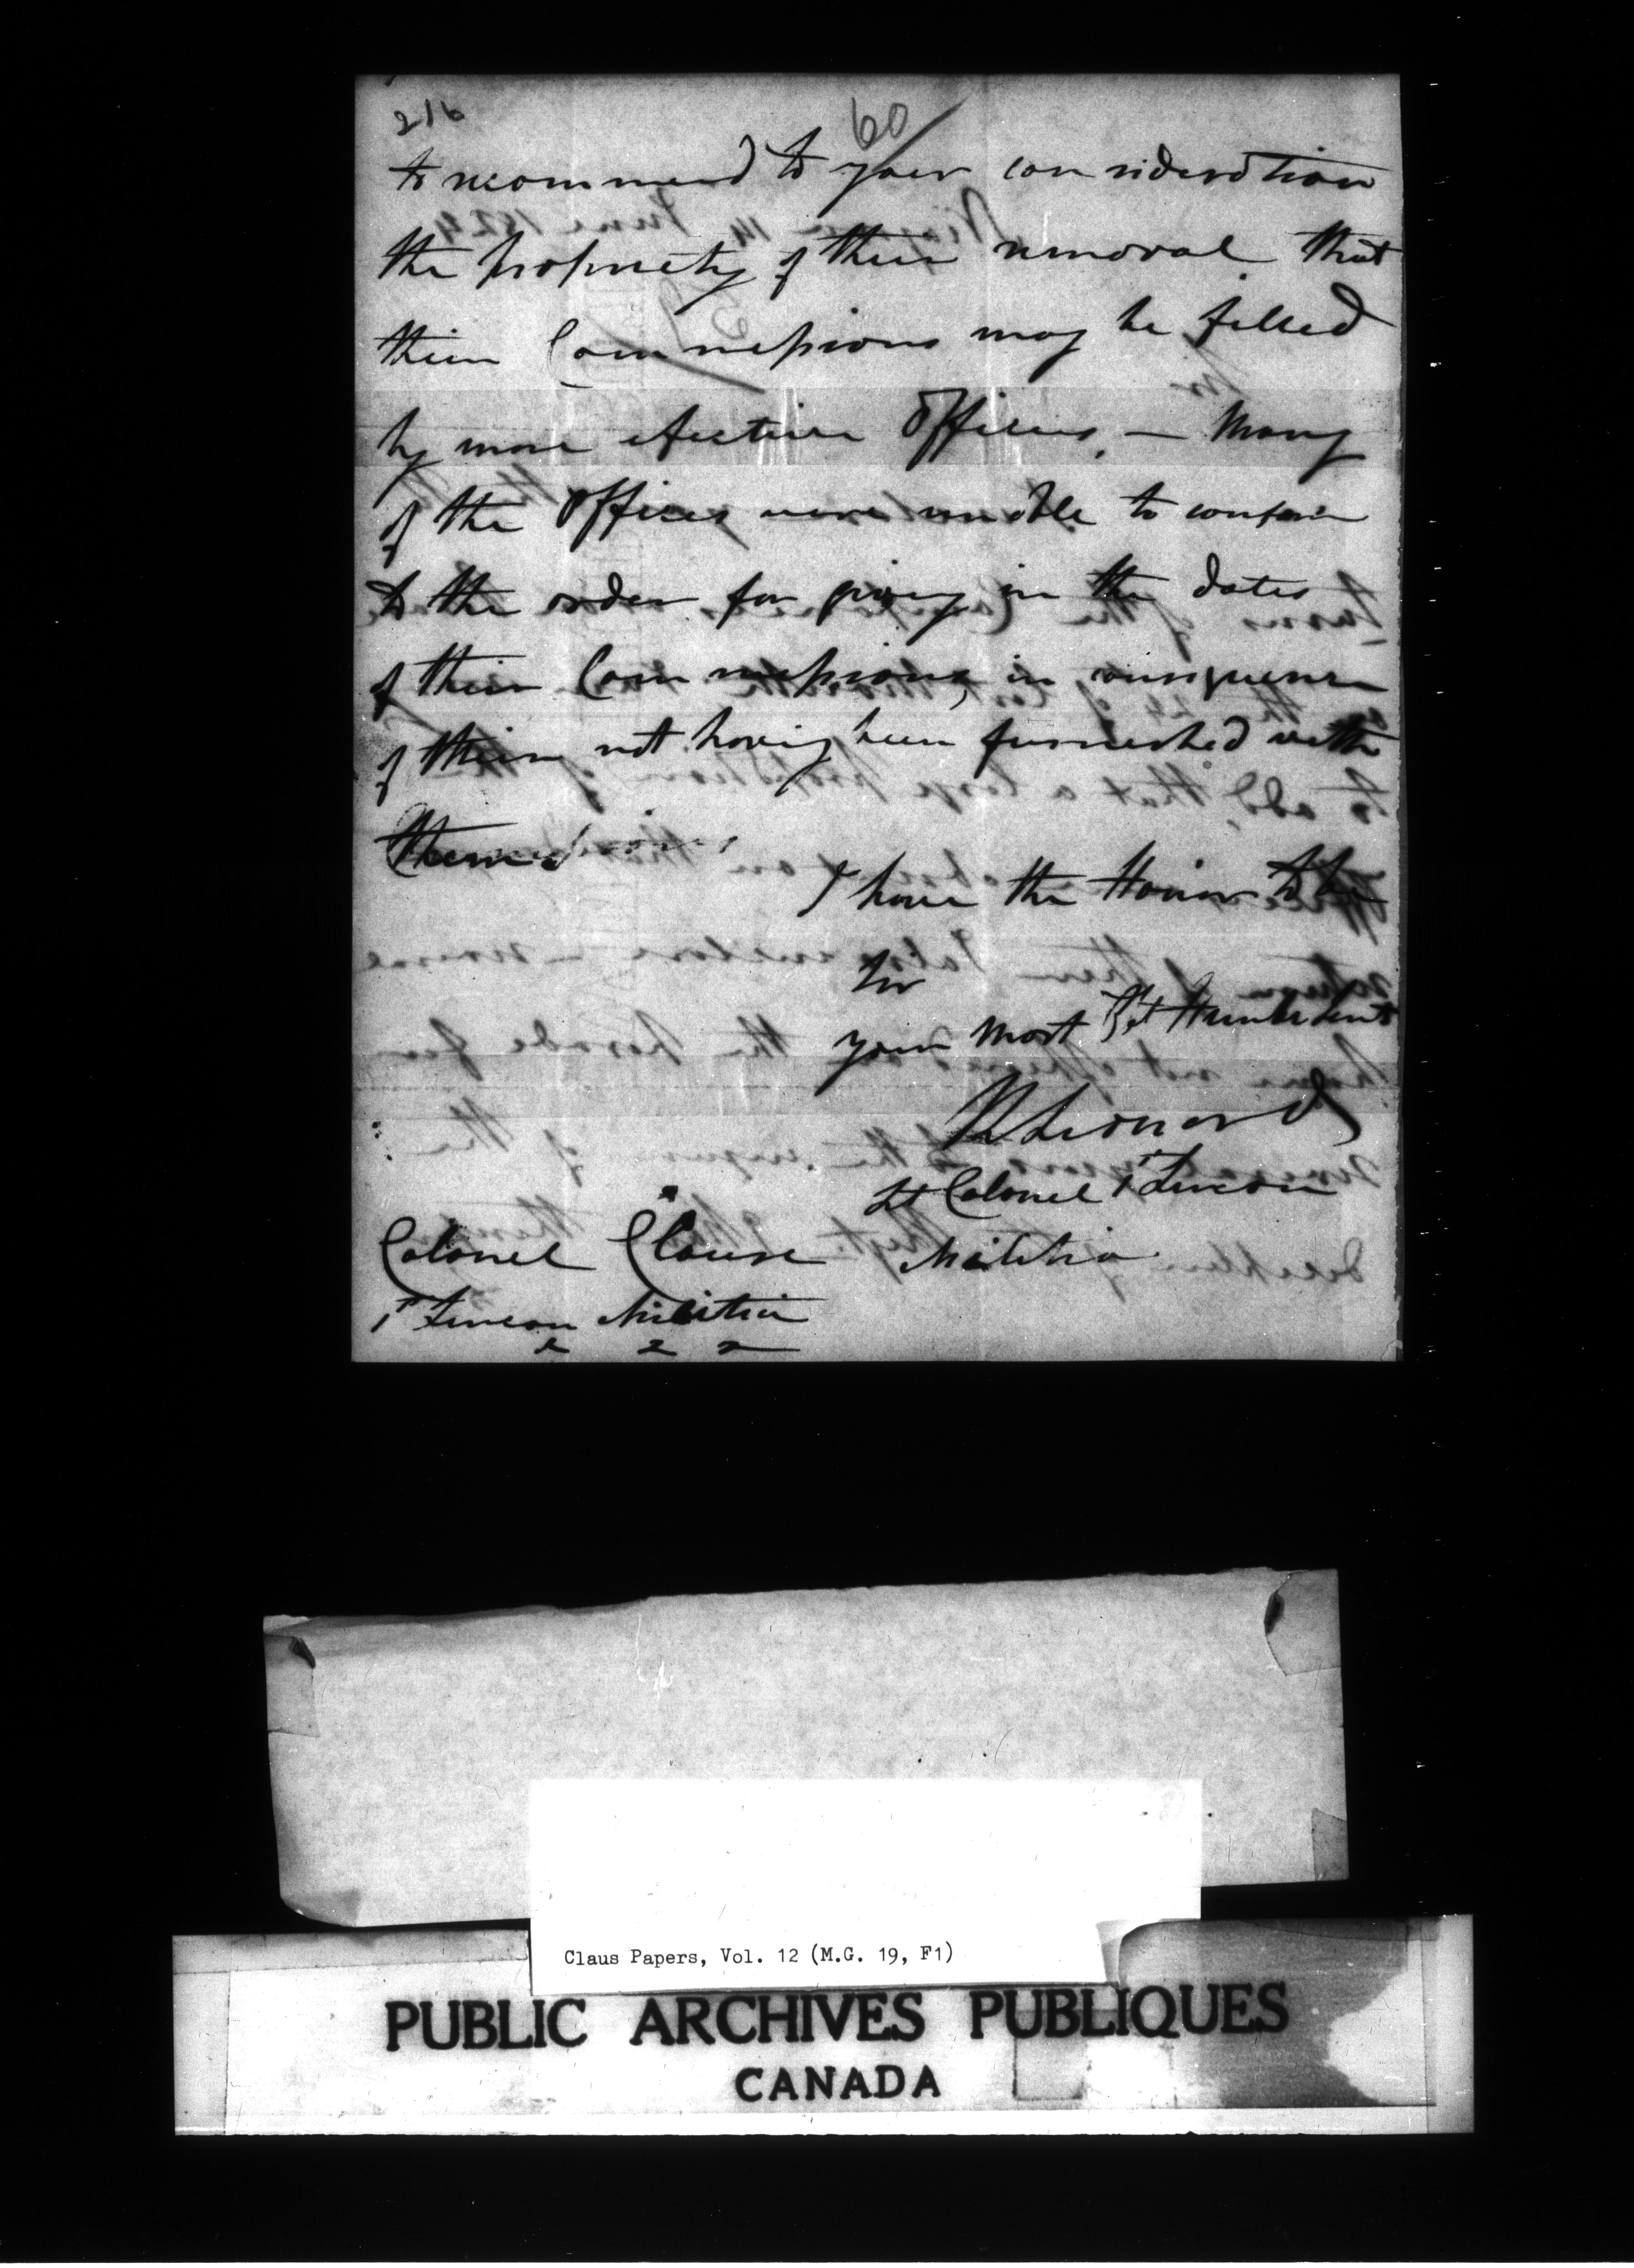 216
60
to recommend to your consideration
the propriety of their removal that
their Commissions may be filled
by more efective Officers, — Many
of the Officers were unable to conform
to the order for giving in the dates
of their Commissions, in consequence
of their not having been furnished with
them
I have the Honor to be
Sir
your Most Obt Humble Sert
R Leonard
Lt Colonel 1st Lincoln
Militia
Colonel Clause
1st Lincoln Militia
Claus Papers, Vol. 12 (M.G. 19, F1)
PUBLIC ARCHIVES PUBLIQUES
CANADA